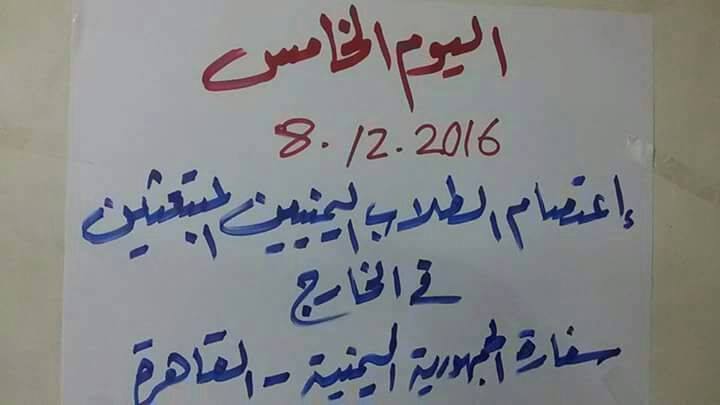 اليوم الخامس
8.12.2016
إعتصام الطلاب اليمنيين المبتعثين
في الخارج
سفارة الجمهورية اليمنية - القاهرة